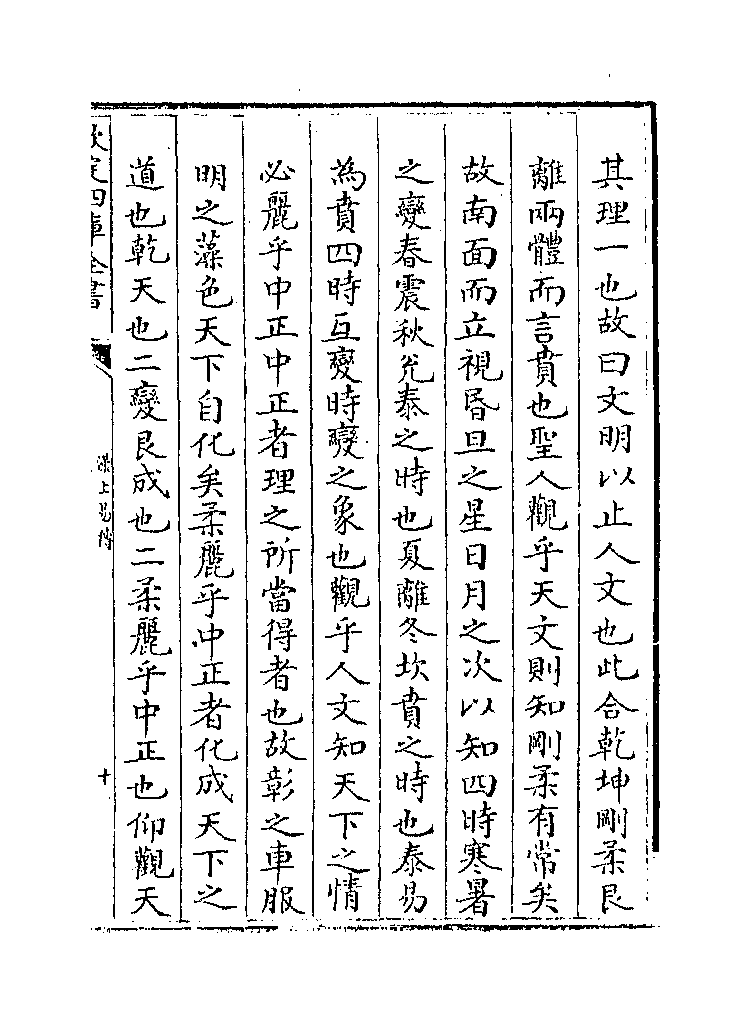 其理一也故曰文明以止人文也此合乾坤剛柔艮
離兩體而言賁也聖人觀乎天文則知剛柔有常矣
故南面而立視昏旦之星日月之次以知四時寒暑
之變春震秋兊泰之時也夏離冬坎賁之時也泰易
為賁四時互變時變之象也觀乎人文知天下之情
必麗乎中正中正者理之所當得者也故彰之車服
明之藻色天下自化矣柔麗乎中正者化成天下之
道也乾天也二變艮成也二柔麗乎中正也仰觀天
欽定四庫全書
漢上易傳
十